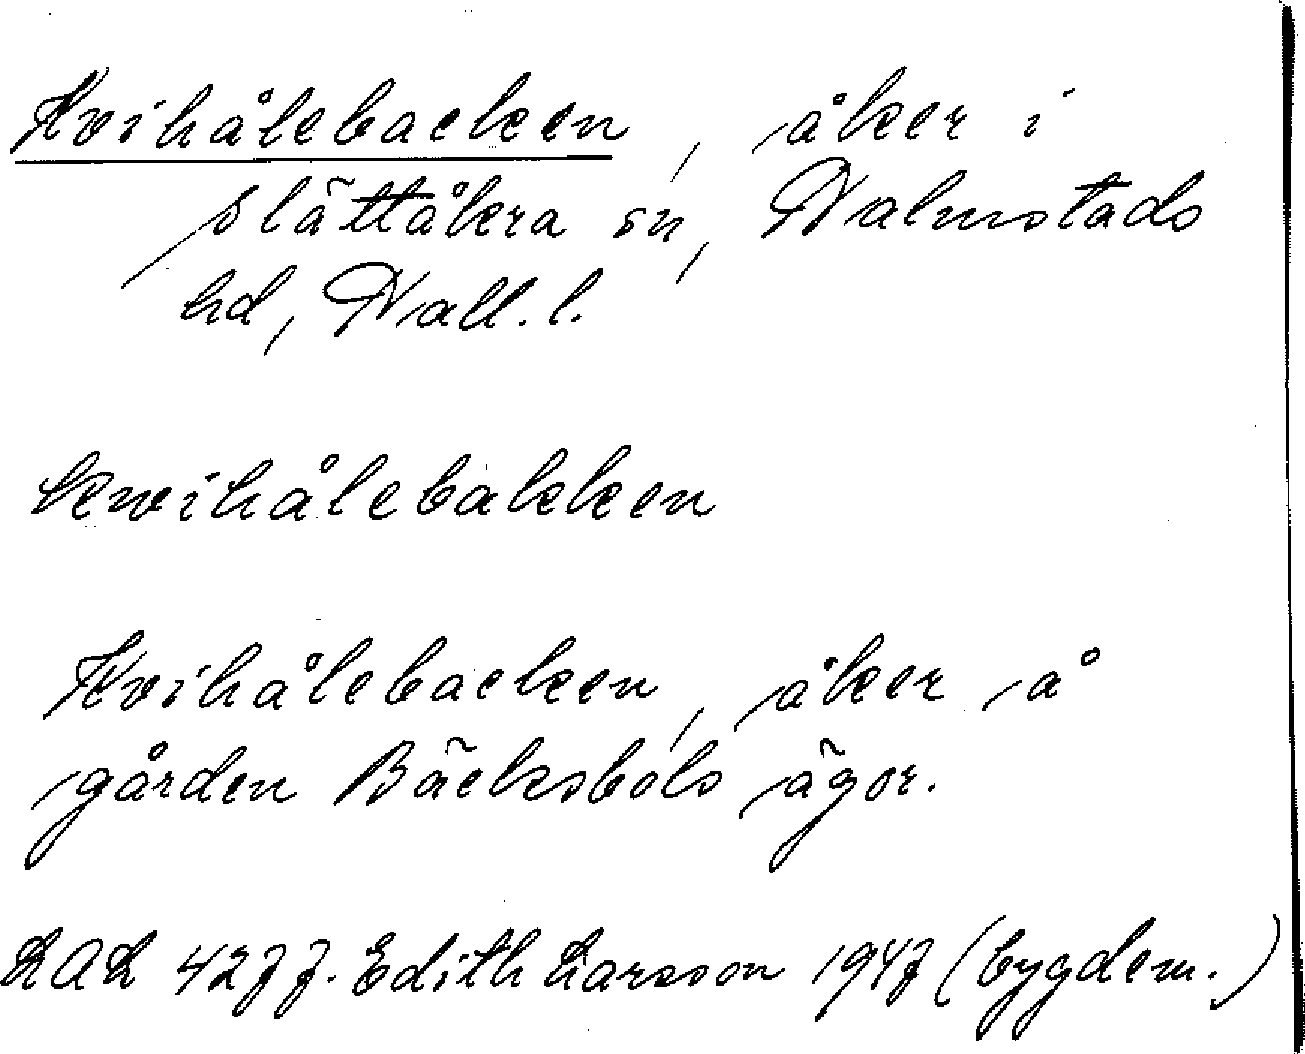 Kvihålebacken, åker i
Slättåkra sn, Halmstads
hd, Hall. l.
kwihålebakken
Kvihålebacken, åker å
gården Bäcksbols ägor.
LAL 4277. Edith Larsson 1947 (bygdem.)